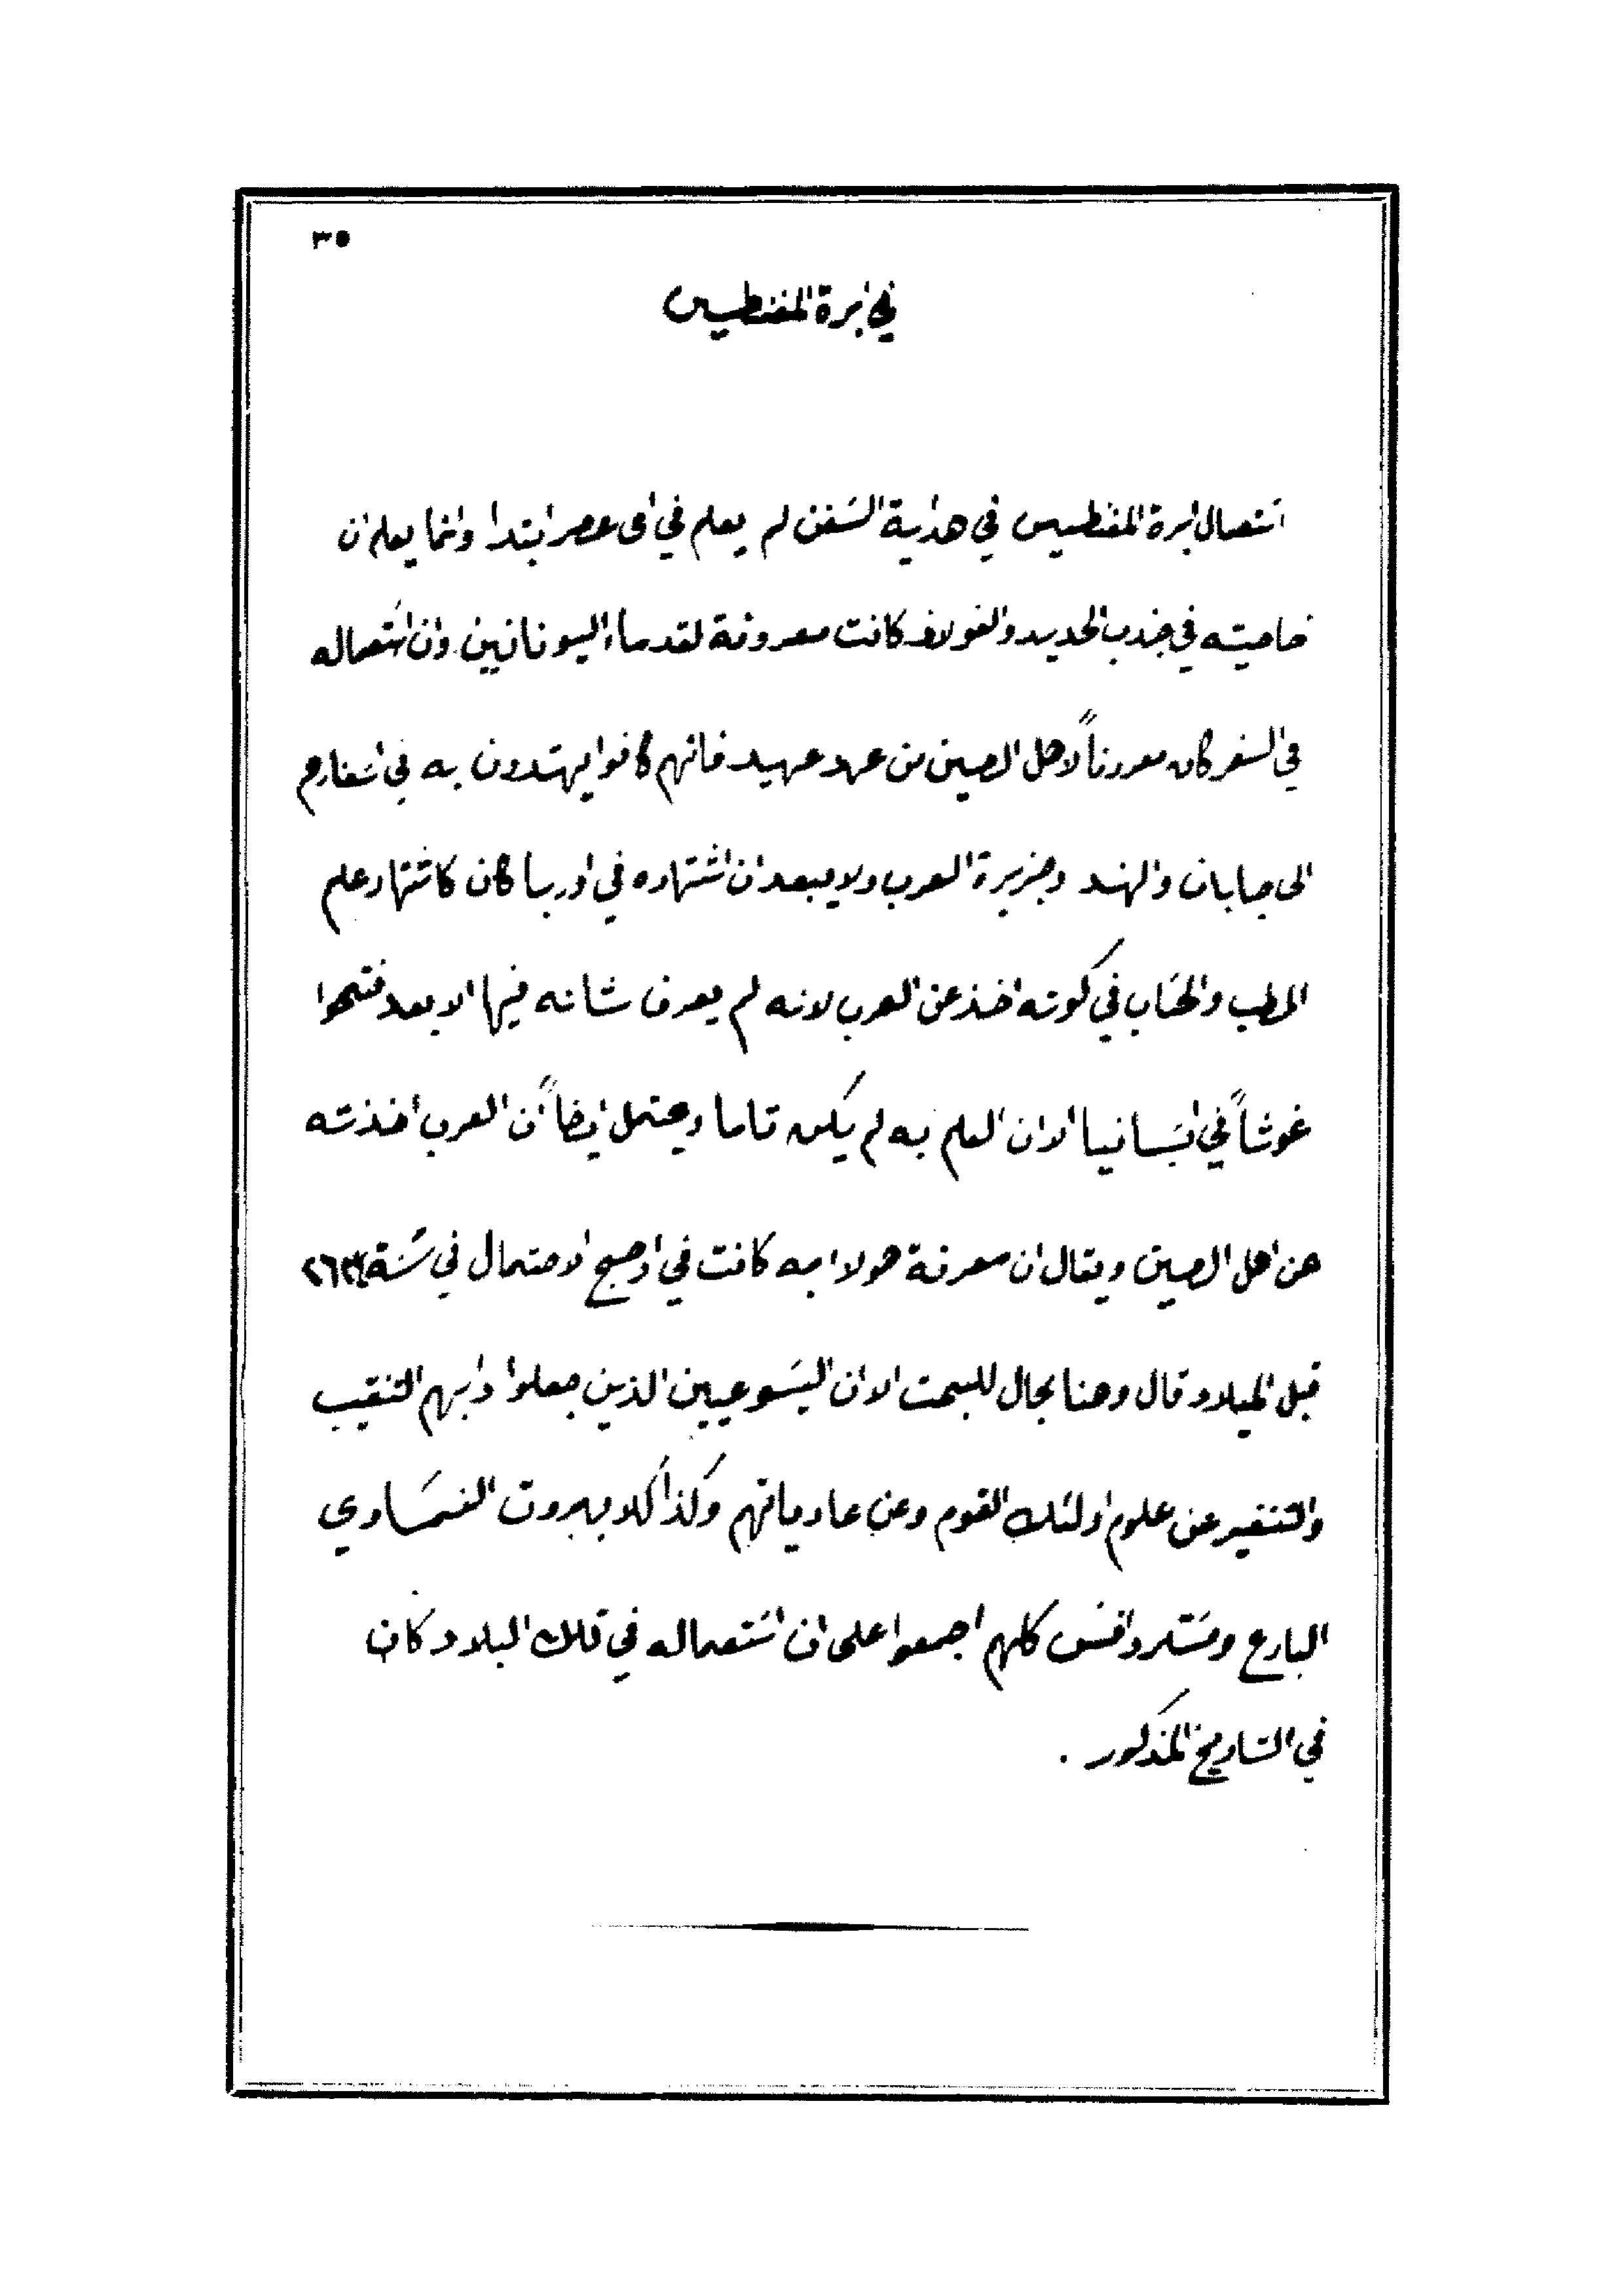 ٣٥
في ابرة المغنطيس
استعمال ابرة المغنطيس في هداية السفن لم يعلم في اى عصر ابتدا وانما يعلم ان
خاصيته في جذب الحديد والفولاذ كانت معروفة لقدماء اليونانيين وان استعماله
في السفر كان معروفاً لاهل الصين من عهد عهيد فانهم كانوا يهتدون به في اسفارهم
الى جابان والهند وجزيرة العرب ولا يبعد ان اشتهاره في اوربا كان كاشتهار علم
الطب والحساب في كونه اخذ عن العرب لانه لم يعرف شانه فيها الا بعد فتحوا
غوثاً في اسبانيا الا ان العلم به لم يكن تاما ويحتمل ايضاً ان العرب اخذته
عن اهل الصين ويقال ان معرفة هولا به كانت في ارجح الاحتمال في سنة ٢٦٣٤
قبل الميلاد قال وهنا مجال للبحث الا ان اليسوعيين الذين جعلوا دابهم التنقيب
والتنقير عن علوم اولئك القوم وعن عادياتهم وكذا كلابهروت النمساوي
البارع ومستر دافس كلهم اجمعوا على ان استعماله في تلك البلاد كان
في التاريخ المذكور .